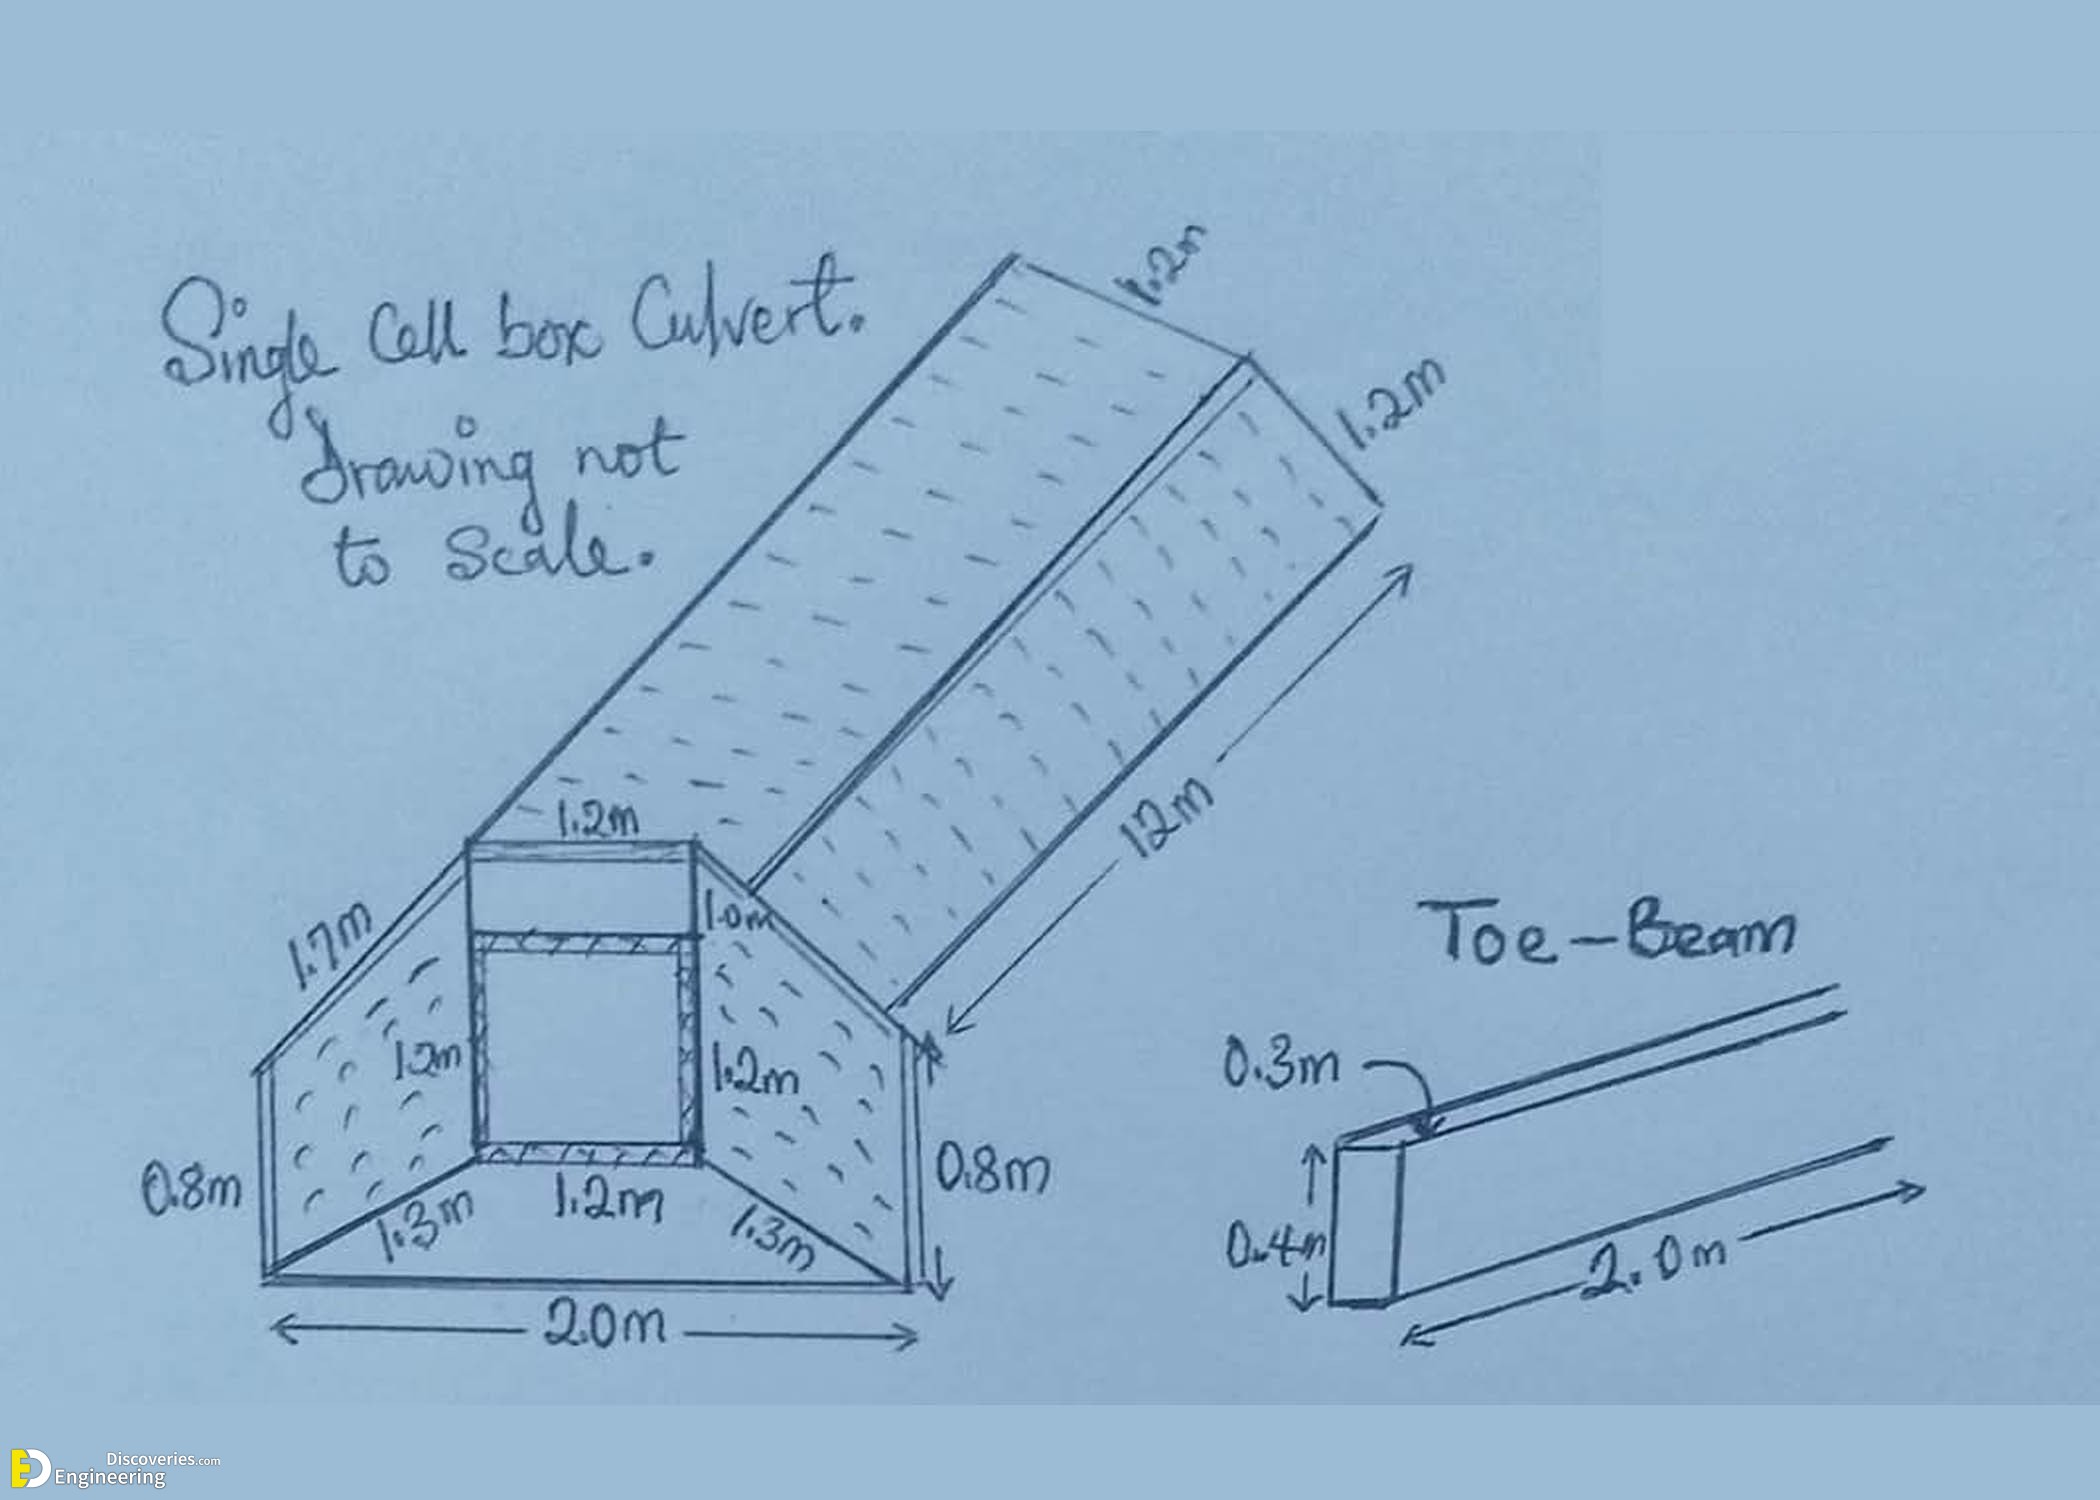 Single Cell box Culvert.
drawing not
to Scale.
1.2m
1.2m
12m
1.2m
1.0m
1.7m
1.2m
1.2m
0.8m
0.8m
1.3m
1.2m
1.3m
2.0m
Toe-Beam
0.3m
0.4m
2.0m
Discoveries.com
Engineering